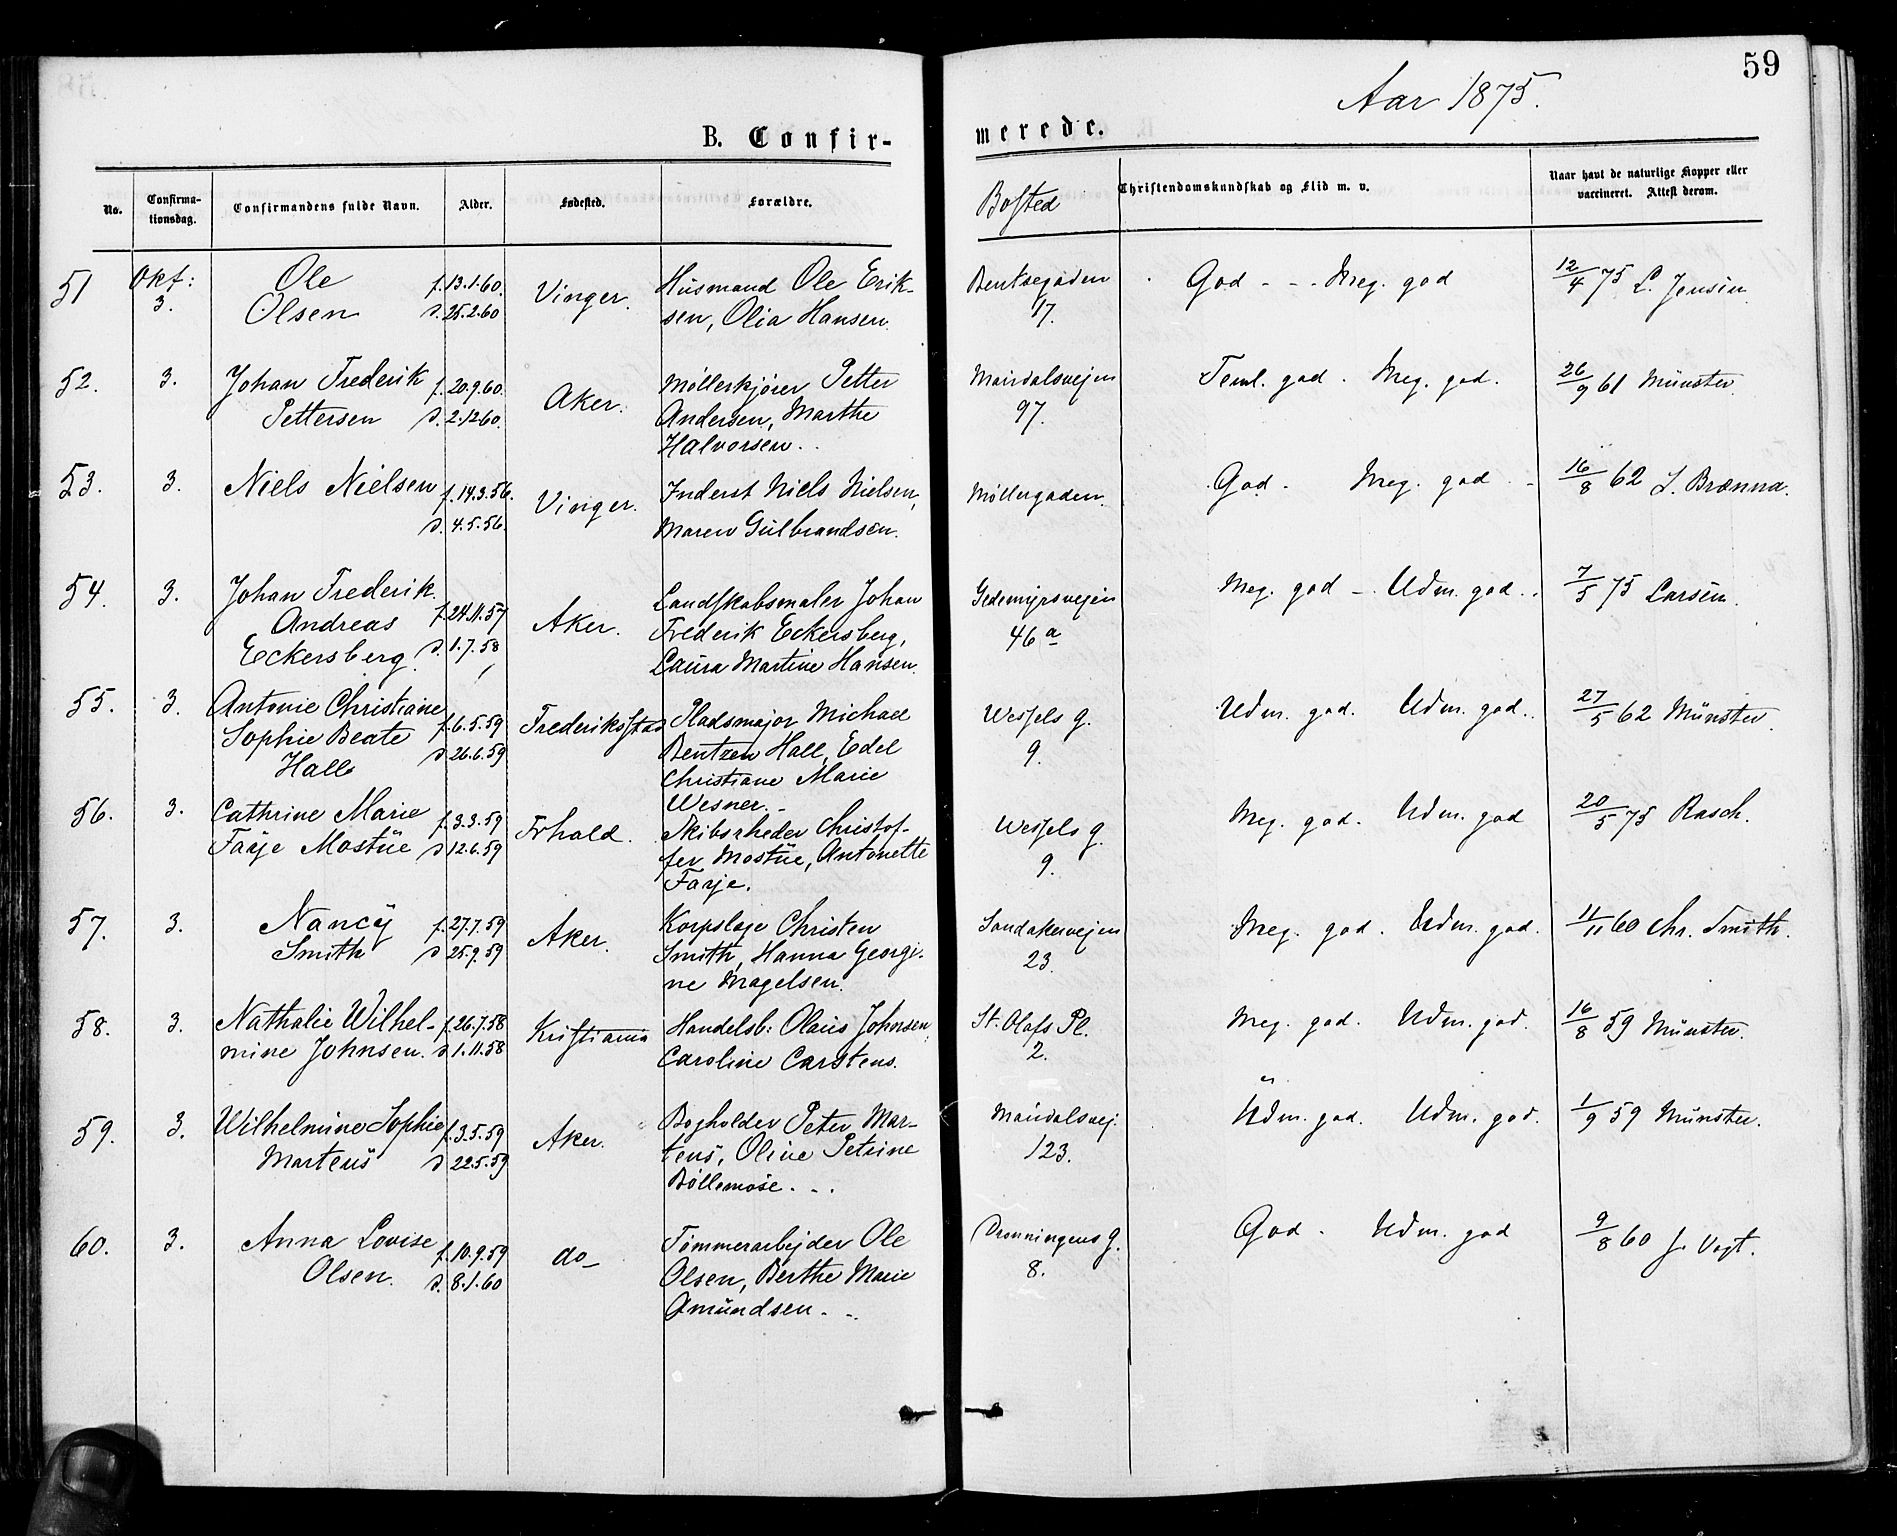 59
Aar 1875.
B. Confir-
merede.
No.
Confirma-
tionsdag.
Confirmandens fulde Navn.
Alder.
Fødested.
Forældre.
Bosted
Christendomskundskab og Flid m. v.
Naar havt de naturlige Kopper eller
vaccineret. Attest derom.
51 Okt: Ole f. 13.1.60. Vinger. Husmand Ole Erik- Bentsegaden God - - - Meg. god 12/4 75 L. Jensen
3. Olsen d. 25.2.60 sen, Olia Hansen. 17.
52. 3. Johan Frederik f. 20.9.60. Aker. Møllerkjører Petter Maridalsvejen Teml. god. Meg. god. 26/9 61 Münster.
Pettersen d. 2.12.60. Andersen, Marthe 97.
Halvorsen.
53. 3. Niels Nielsen f. 14.3.56. Vinger. Inderst Niels Nielsen, Møllergaden. God. Meg. god - 16/8 62 I. Brænna.
d. 4.5.56. Maren Gulbrandsen.
54. 3. Johan Frederik Landskabsmaler Johan Gedemyrsvejen Meg. god - Udm. god. 7/5 75 Larsen.
Andreas f. 24.11.57 Aker. Frederik Eckersberg, 46 a
Eckersberg. d. 1.7.58 Laura Martine Hansen.
55. 3. Antonie Christiane f. 6.5.59 Frederiksstad Pladsmajor Michael Wessels g. Udm. god. Udm. god. 27/5 62 Münster.
Sophie Beate d. 26.6.59 Bentzen Hall, Edel 9.
Hall Christiane Marie
Wesner. -
56. 3. Cathrine Marie f. 3.3.59 Frhald. Skibsrheder Christof- Wessels g. Meg. god. Udm. god 20/5 75 Rasch.
Farje Mostüe d. 12.6.59 fer Mostüe, Antonette 9.
Farje.
57. 3. Nancy f. 27.7.59 Aker. Korpslæge Christen Sandakervejen Meg. god. Udm. god. 11/11 60 Chr. Smith.
Smith d. 25.9.59 Smith, Hanna Georgi- 23.
ne Magelsen.
58. 3. Nathalie Wilhel- f. 26.7.58 Kristiania Handelsb: Olaus Johnsen, St. Olafs Pl. Meg. god. Udm. god. 16/8 59 Münster.
mine Johnsen. d. 1.11.58 Caroline Carstens. 2.
59. 3. Wilhelmine Sophie f. 3.5.59 Aker. Bogholder Peter Mar- Maridalsvej. Udm. god. Udm. god. 1/9 59 Münster.
Martens d. 22.5.59 tens, Oline Petrine 123.
Böllemose.
60. 3. Anna Lovise f. 10.9.59 do - Tømmerarbejder Ole Dronningens g. God. Udm. god 9/8 60 J. Vogt.
Olsen. d. 8.1.60 Olsen, Berthe Marie 8.
Amundsen.